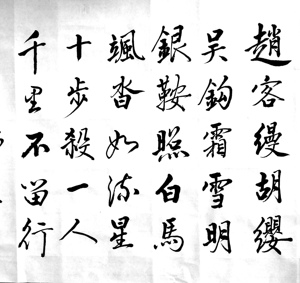 趙客縵胡纓
吴鉤霜雪明
銀鞍照白馬
颯沓如流星
十步殺一人
千里不留行